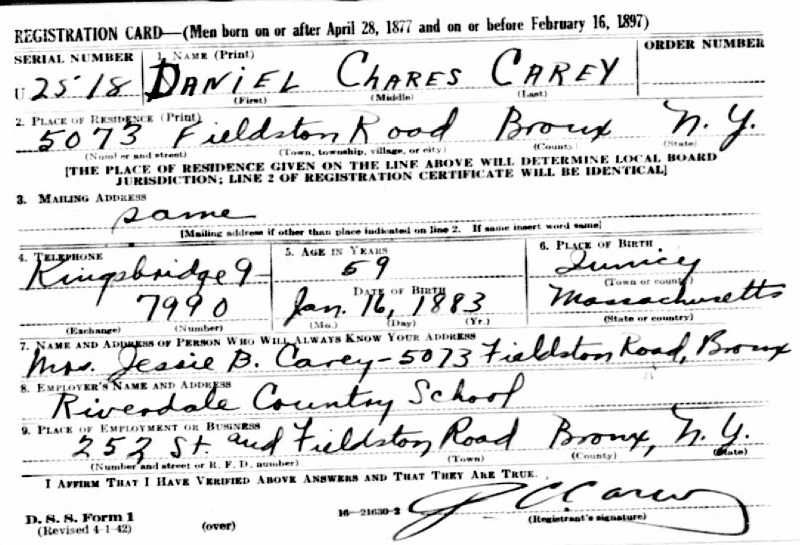 REGISTRATION CARD—(Men born on or after April 28, 1877 and on or before February 16, 1897)
SERIAL NUMBER 1. NAME (Print) ORDER NUMBER
U 2518 DANIEL CHARES CAREY
(First) (Middle) (Last)
2. PLACE OF RESIDENCE (Print)
5073 Fieldston Road Bronx N. Y.
(Number and street) (Town, township, village, or city) (County) (State)
[THE PLACE OF RESIDENCE GIVEN ON THE LINE ABOVE WILL DETERMINE LOCAL BOARD
JURISDICTION; LINE 2 OF REGISTRATION CERTIFICATE WILL BE IDENTICAL]
3. MAILING ADDRESS
same
[Mailing address if other than place indicated on line 2. If same insert word same]
4. TELEPHONE 5. AGE IN YEARS 6. PLACE OF BIRTH
Kingsbridge 9- 59 Quincy
(Town or county)
7990 DATE OF BIRTH
Jan. 16, 1883 Massachusetts
(Exchange) (Number) (Mo.) (Day) (Yr.) (State or country)
7. NAME AND ADDRESS OF PERSON WHO WILL ALWAYS KNOW YOUR ADDRESS
Mrs. Jessie B. Carey-5073 Fieldston Road, Bronx
8. EMPLOYER'S NAME AND ADDRESS
Riverdale Country School
9. PLACE OF EMPLOYMENT OR BUSINESS
252 St. and Fieldston Road Bronx, N. Y.
(Number and street or R. F. D. number) (Town) (County) (State)
I AFFIRM THAT I HAVE VERIFIED ABOVE ANSWERS AND THAT THEY ARE TRUE.
D. S. S. Form 1 16—21630-2 D C Carey
(Revised 4-1-42) (over) (Registrant's signature)